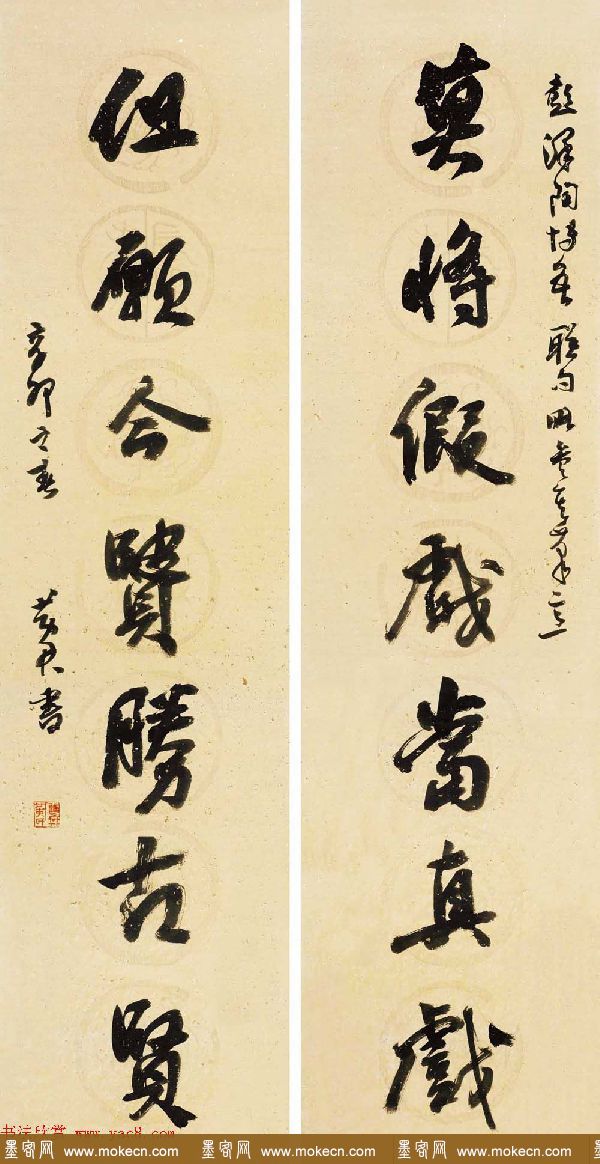 彭澤陶博吾聯句
莫將假戲當真戲
但願今賢勝古賢
辛卯之春 黃君書
书法欣赏 www.yac8.com
墨客网 www.mokecn.com 墨客网 www.mokecn.com 墨客网 www.mokecn.com